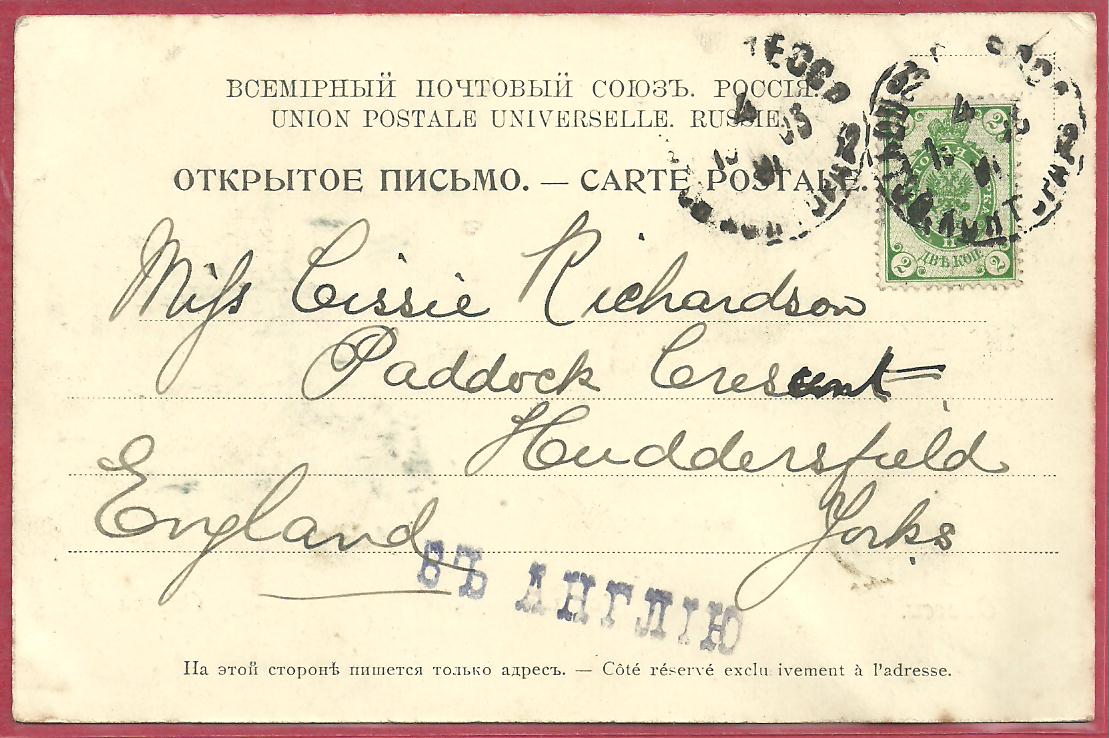 ВСЕМІРНЫЙ ПОЧТОВЫЙ СОЮЗЪ. РОССІЯ.
UNION POSTALE UNIVERSELLE. RUSSIE.
ОТКРЫТОЕ ПИСЬМО. — CARTE POSTALE.
2 2
ДВѢ КОП
2 2
Miss Cissie Richardson
Paddock Cresent
Huddersfield
England Yorks
ВЪ АНГЛІЮ
На этой сторонѣ пишется только адресъ. — Côté réservé exclu ivement à l'adresse.